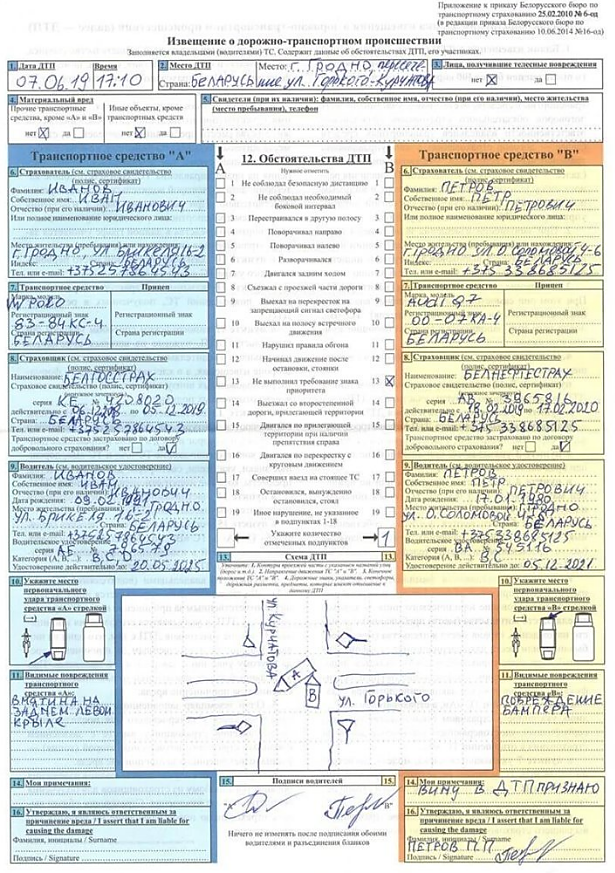 Приложение к приказу Белорусского бюро по
транспортному страхованию 25.02.2010 № 6-од
(в редакции приказу Белорусского бюро по
транспортному страхованию 10.06.2014 №16-од)
Извещение о дорожно-транспортном происшествии
Заполняется владельцами (водителями) ТС. Содержит данные об обстоятельствах ДТП, его участниках.
1. Дата ДТП Время
07.06.19 17:10
2. Место ДТП Место: г. Гродно, пересече-
Страна: БЕЛАРУСЬ ние ул. Горького-Курчатова
3. Лица, получившие телесные повреждения
нет X да
4. Материальный вред
Прочие транспортные средства, кроме «А» и «В»
нет X да
Иные объекты, кроме транспортных средств
нет X да
5. Свидетели (при их наличии): фамилия, собственное имя, отчество (при его наличии), место жительства
(место пребывания), телефон
Транспортное средство "А"
6. Страхователь (см. страховое свидетельство
(полис, сертификат)
Фамилия: ИВАНОВ
Собственное имя: ИВАН
Отчество (при его наличии) ИВАНОВИЧ
Или полное наименование юридического лица:
Место жительства (пребывания) или нахождения:
г. ГРОДНО, УЛ. БРИКЕЛЯ 16-2
Индекс: Страна: БЕЛАРУСЬ
Тел. или e-mail: +375257864543
7. Транспортное средство Прицеп
Марка, модель
Регистрационный знак Регистрационный знак
83-84 КС-4
Страна регистрации Страна регистрации
БЕЛАРУСЬ
8. Страховщик (см. страховое свидетельство
(полис, сертификат)
Наименование: БЕЛГОССТРАХ
Страховое свидетельство (полис, сертификат)
серия КЕ № 4208020
действительно с 06.12.2018 по 05.12.2019
Страна: БЕЛАРУСЬ
Тел. или e-mail: +375257864543
Транспортное средство застраховано по договору
добровольного страхования? нет да V
9. Водитель (см. водительское удостоверение)
Фамилия: ИВАНОВ
Собственное имя: ИВАН
Отчество (при его наличии): ИВАНОВИЧ
Дата рождения:
Место жительства (пребывания): г. ГРОДНО
УЛ. БРИКЕЛЯ 16-2
Страна: БЕЛАРУСЬ
Тел. или e-mail: +375257864543
Водительское удостоверение
серия АЕ №
Категория (А, В, ) ВС
Действительно до: 20.05.2025
А 12. Обстоятельства ДТП В
Нужное отметить
1 Не соблюдал безопасную дистанцию 1
2 Не соблюдал необходимый боковой интервал 2
3 Перестраивался в другую полосу 3
4 Поворачивал направо 4
5 Поворачивал налево 5
6 Разворачивался 6
7 Двигался задним ходом 7
8 Съезжал с проезжей части дороги 8
9 Выехал на перекресток на запрещающий сигнал светофора 9
10 Выехал на полосу встречного движения 10
11 Нарушил правила обгона 11
12 Начинал движение после остановки, стоянки 12
13 Не выполнил требование знака приоритета 13 X
14 Выезжал со второстепенной дороги, прилегающей территории 14
15 Двигался по прилегающей территории при наличии препятствия справа 15
16 Двигался по перекрестку с круговым движением 16
17 Совершил наезд на стоящее ТС 17
18 Остановился, вынужденно остановился, стоял 18
19 Иное нарушение, не указанное в подпунктах 1-18 19
Укажите количество отмеченных подпунктов 1
Транспортное средство "В"
6. Страхователь (см. страховое свидетельство
(полис, сертификат)
Фамилия: ПЕТРОВ
Собственное имя: ПЕТР
Отчество (при его наличии) ПЕТРОВИЧ
Или полное наименование юридического лица:
Место жительства (пребывания) или нахождения:
г. ГРОДНО УЛ О. СОЛОМОВОЙ 4-6
Индекс: Страна: БЕЛАРУСЬ
Тел. или e-mail: +375 338685125
7. Транспортное средство Прицеп
Марка, модель
AUDI Q7
Регистрационный знак Регистрационный знак
00-07 КА-4
Страна регистрации Страна регистрации
БЕЛАРУСЬ
8. Страховщик (см. страховое свидетельство
(полис, сертификат)
Наименование: БЕЛНЕФТЕСТРАХ
Страховое свидетельство (полис, сертификат)
серия АВ № 3965816
действительно с 18.02.2019 по 17.02.2020
Страна: БЕЛАРУСЬ
Тел. или e-mail: +375338685125
Транспортное средство застраховано по договору
добровольного страхования? нет да V
9. Водитель (см. водительское удостоверение)
Фамилия: ПЕТРОВ
Собственное имя: ПЕТР
Отчество (при его наличии): ПЕТРОВИЧ
Дата рождения:
Место жительства (пребывания): г. ГРОДНО
УЛ. О. СОЛОМОВОЙ
Страна: БЕЛАРУСЬ
Тел. или e-mail: +375338685125
Водительское удостоверение
серия ВА № 545116
Категория (А, В, ) ВС
Действительно до: 05.12.2021
13. Схема ДТП 13.
10. Укажите место первоначального удара транспортного средства «А» стрелкой
10. Укажите место первоначального удара транспортного средства «В» стрелкой
ул. КУРЧАТОВА
А
В
ул. ГОРЬКОГО
11. Видимые повреждения транспортного средства «А»:
ВМЯТИНА НА
ЗАДНЕМ ЛЕВОМ
КРЫЛЕ
11. Видимые повреждения транспортного средства «В»:
ПОВРЕЖДЕНИЕ
БАМПЕРА
14. Мои примечания:
15. Подписи водителей 15.
"А" "В"
Ничего не изменять после подписания обоими
водителями и разъединения бланков
14. Мои примечания:
ВИНУ В ДТП ПРИЗНАЮ
16. Утверждаю, я являюсь ответственным за
причинение вреда / I assert that I am liable for
causing the damage
Фамилия, инициалы / Surname
Подпись / Signature
16. Утверждаю, я являюсь ответственным за
причинение вреда / I assert that I am liable for
causing the damage
Фамилия, инициалы / Surname
ПЕТРОВ П.П.
Подпись / Signature